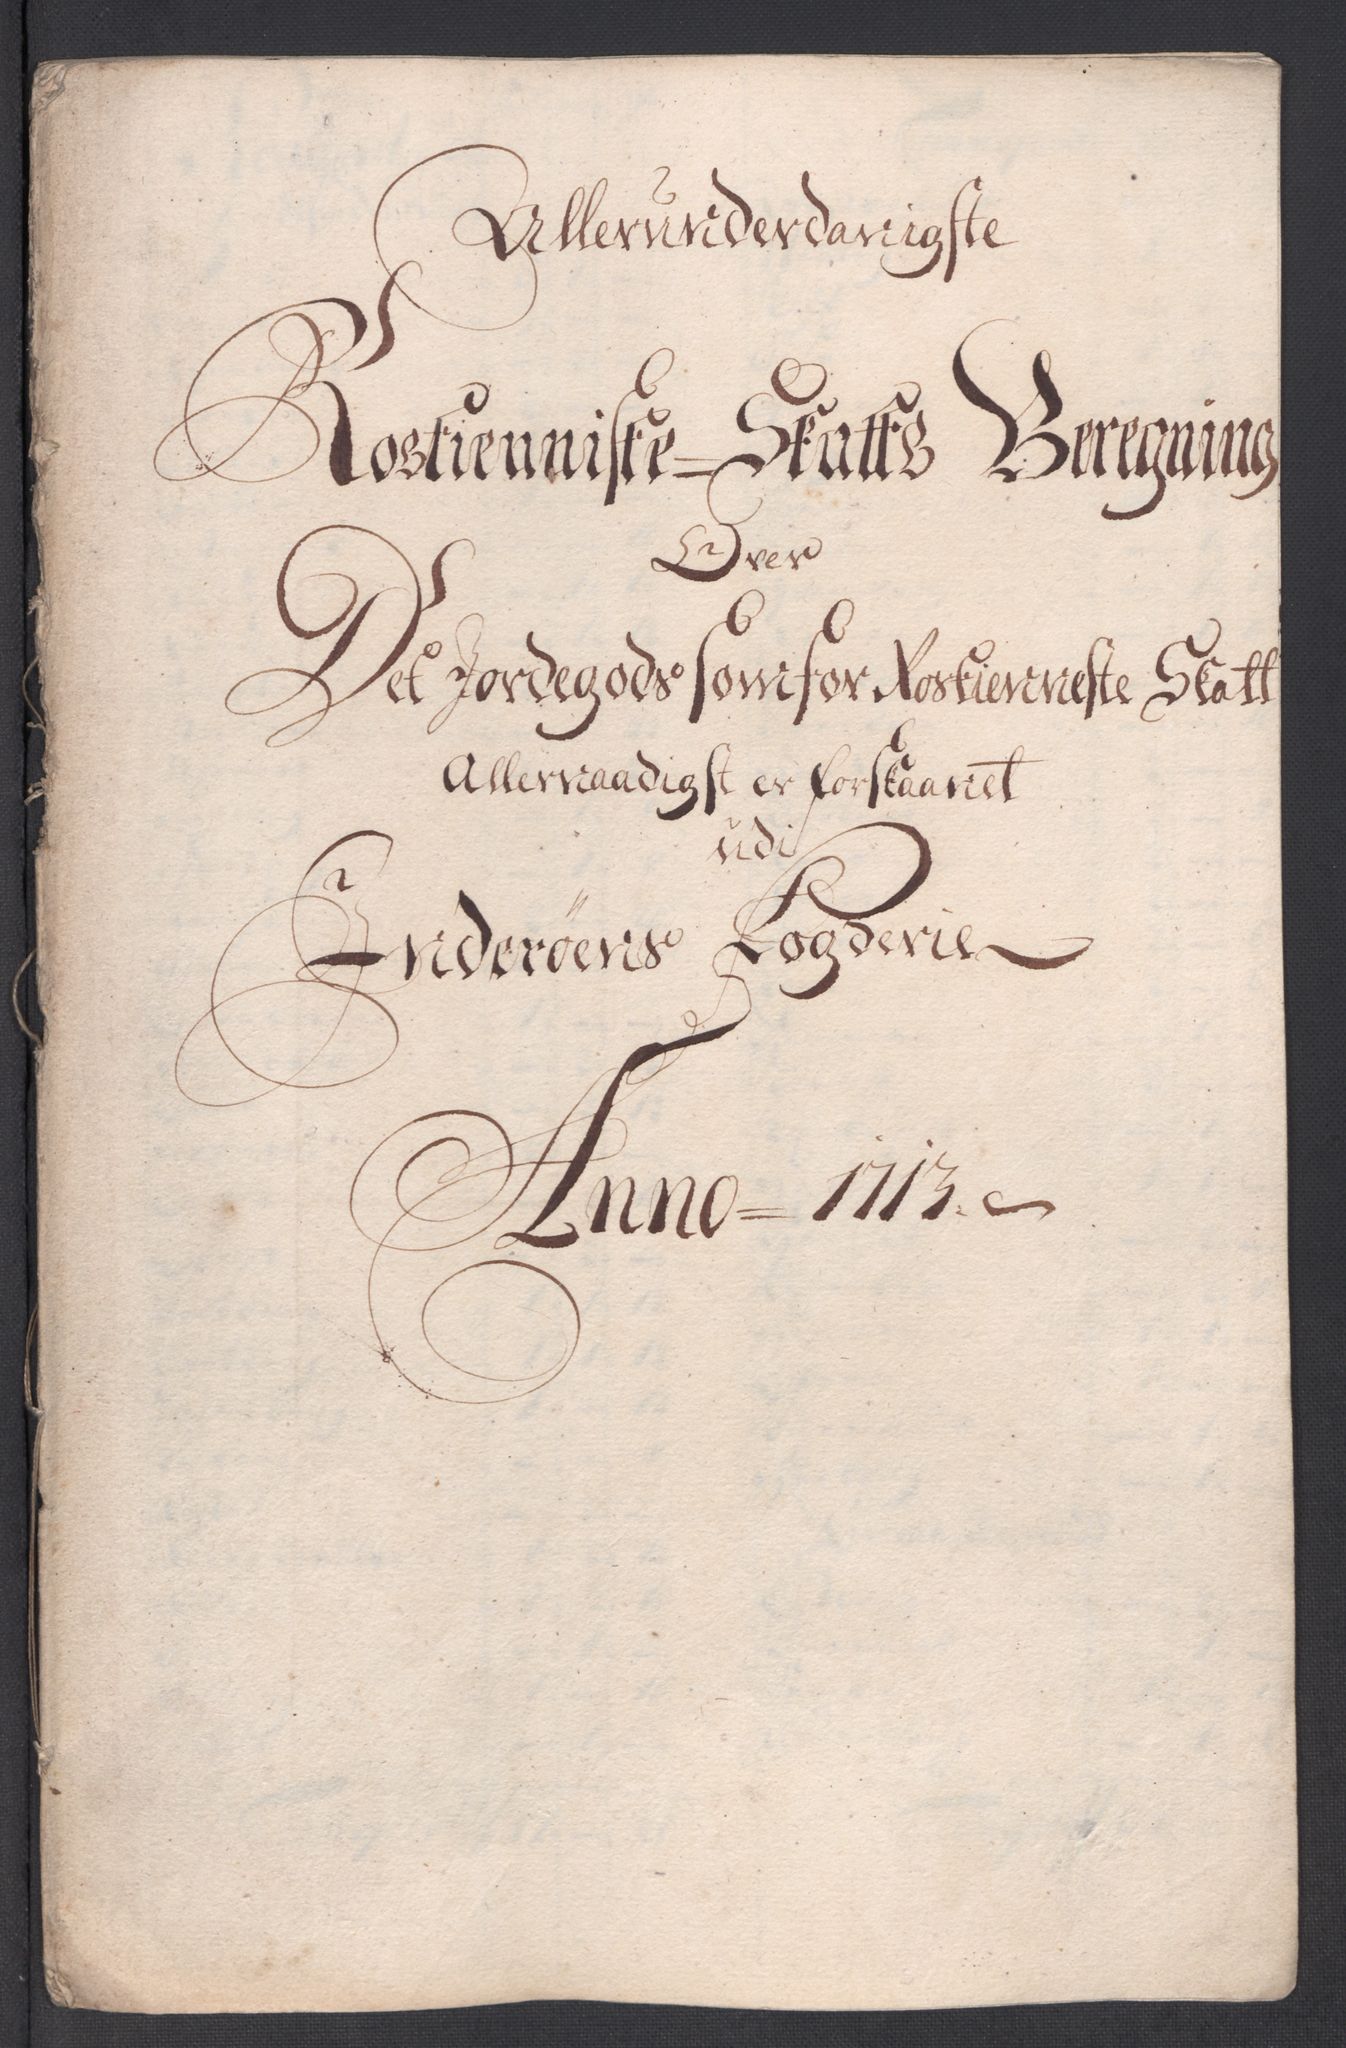 Allerunderdanigste
Rostienniste=Skatts Beregning
Over
Det Jordegods som for Rostienneste Skatt
Allernaadigst er forskaanet
udi
Inderöens Fogderie
Anno=1713.